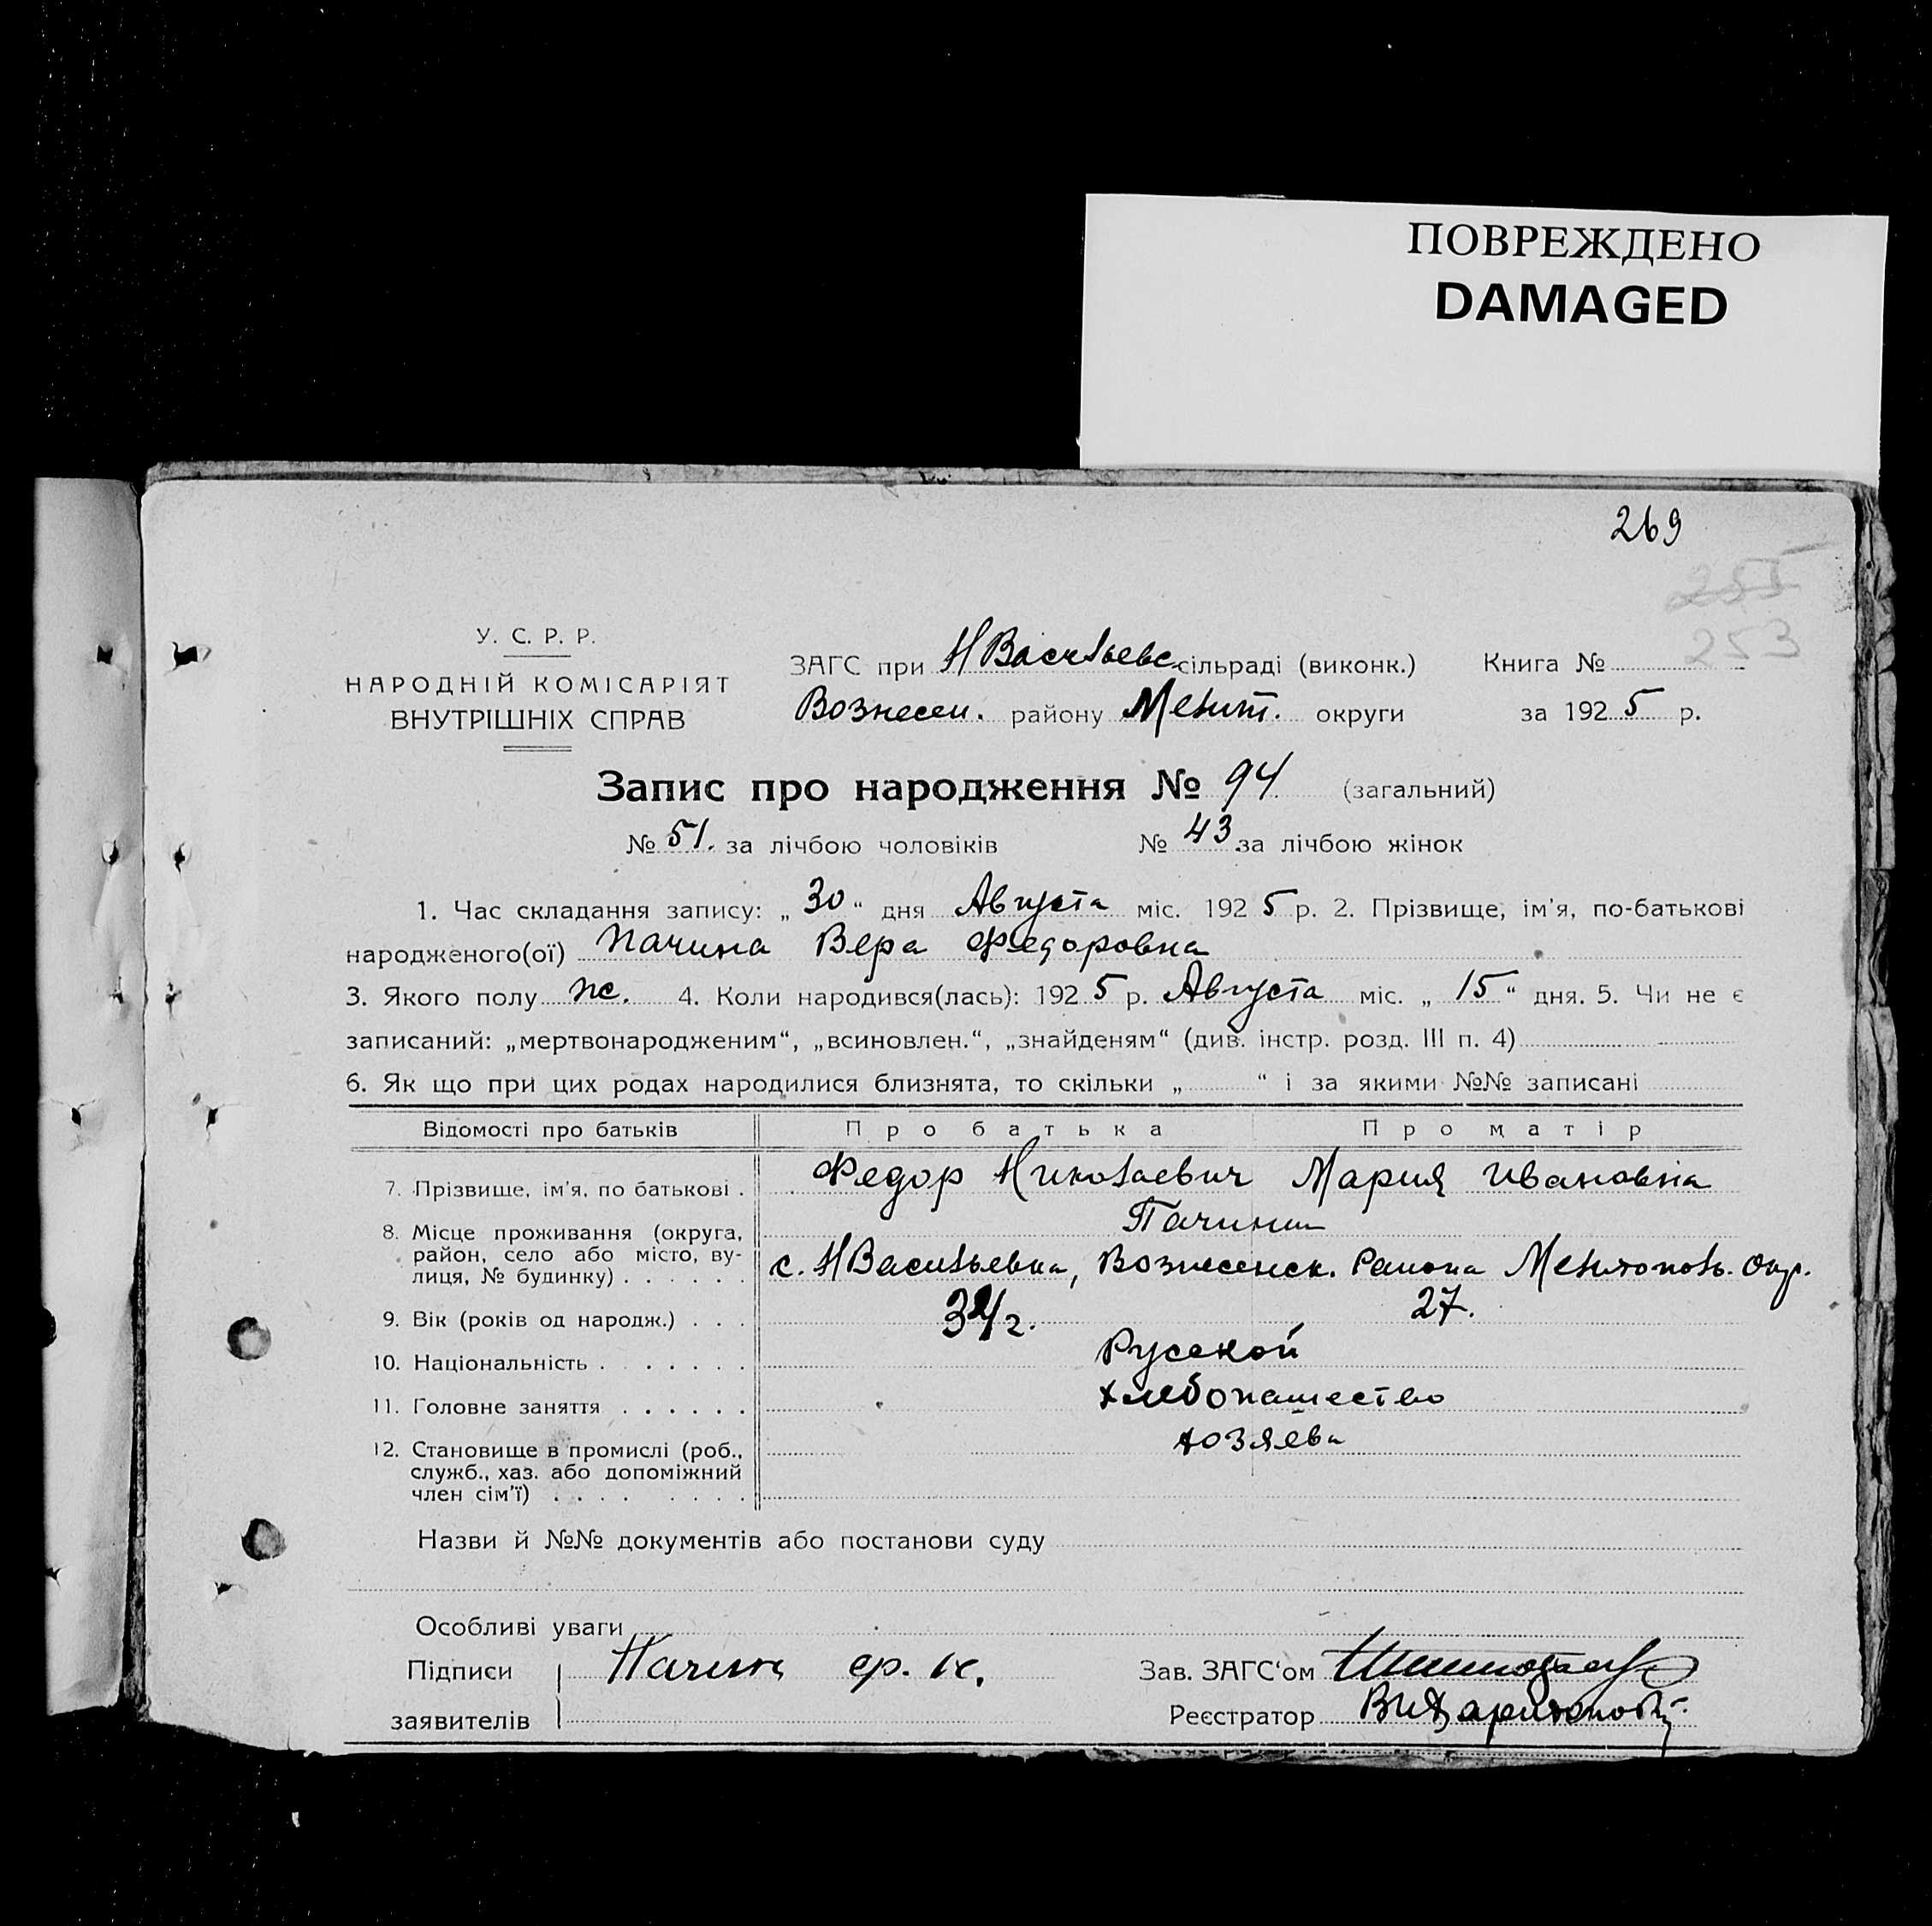 ПОВРЕЖДЕНО
DAMAGED
269
255
253
У. С. Р. Р.
НАРОДНІЙ КОМІСАРІЯТ
ВНУТРІШНІХ СПРАВ
ЗАГС при НВасильевс. сільраді (виконк.) Книга №
Вознесен. району Мелит. округи за 1925 р.
Запис про народження № 94 (загальний)
№ 51. за лічбою чоловіків № 43 за лічбою жінок
1. Час складання запису: „30“ дня Августа міс. 1925 р. 2. Прізвище, ім'я, по-батькові
народженого(ої) Пачина Вера Федоровна
3. Якого полу ж. 4. Коли народився(лась): 1925 р. Августа міс. „15“ дня. 5. Чи не є
записаний: „мертвонародженим“, „всиновлен.“, „знайденям“ (див. інстр. розд. III п. 4)
6. Як що при цих родах народилися близнята, то скільки „ “ і за якими №№ записані
Відомості про батьків Про батька Про матір
7. Прізвище, ім'я, по батькові . Федор Николаевич Мария Ивановна
Пачины
8. Місце проживання (округа,
район, село або місто, ву-
лиця, № будинку) . . . . . . с. НВасильевка, Вознесенск. Района Мелитополь. Окр.
9. Вік (років од народж.) . . . 34 г. 27.
10. Національність . . . . . . . Русской
11. Головне заняття . . . . . . Хлебопашество
12. Становище в промислі (роб., хозяева
служб., хаз. або допоміжний
член сім'ї) . . . . . . . .
Назви й №№ документів або постанови суду
Особливі уваги
Підписи Пачин ф. н. Зав. ЗАГС'ом
заявителів Реєстратор